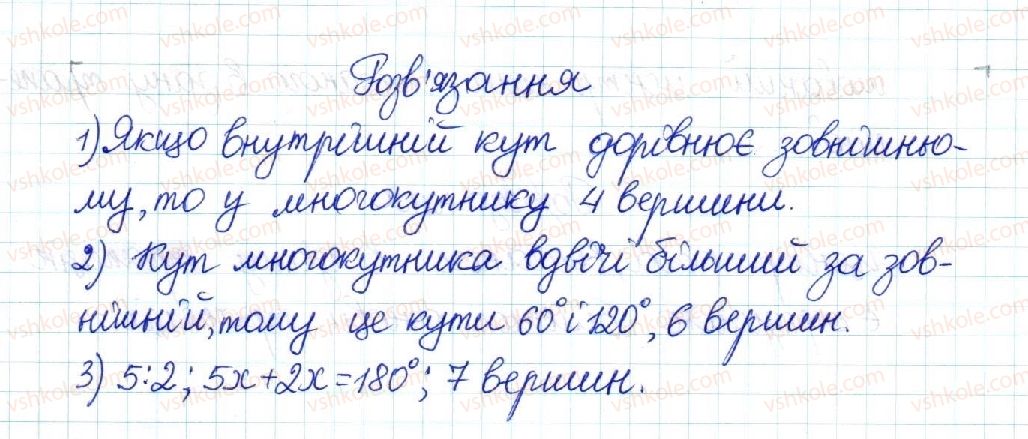 Розв'язання
1) Якщо внутрішній кут дорівнює зовнішньо-
му, то у многокутнику 4 вершини.
2) Кут многокутника вдвічі більший за зов-
нішній, тому це кути 60° і 120°, 6 вершин.
3) 5:2; 5x+2x=180°; 7 вершин.